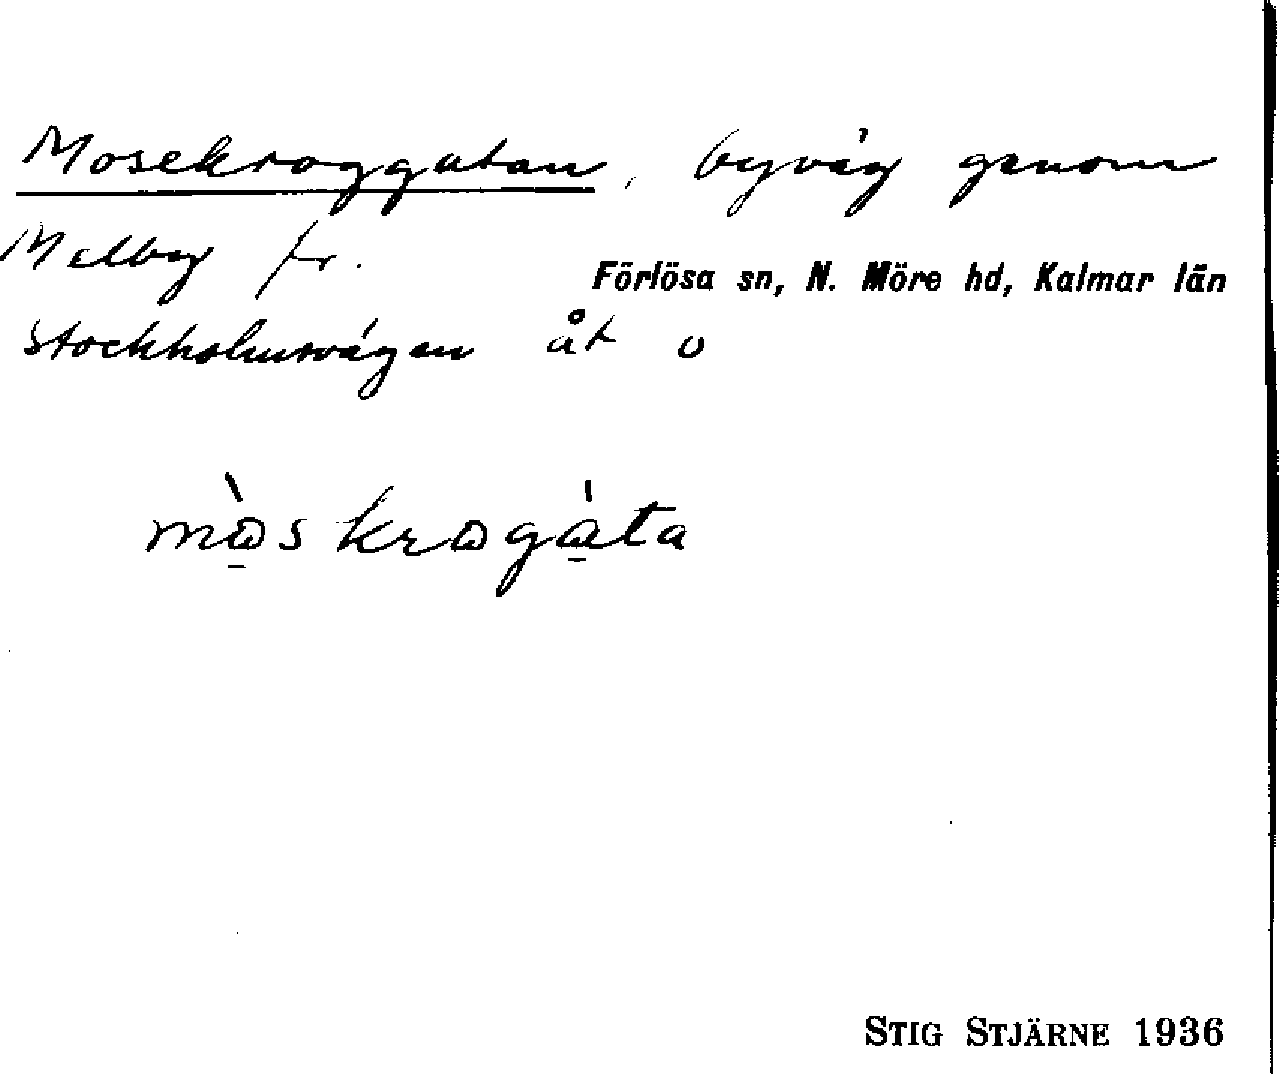 Mosekroggatan, byväg genom
Melby fr.
Förlösa sn, N. Möre hd, Kalmar län
Stockholmsvägen åt o
mòskrogàta
STIG STJÄRNE 1936